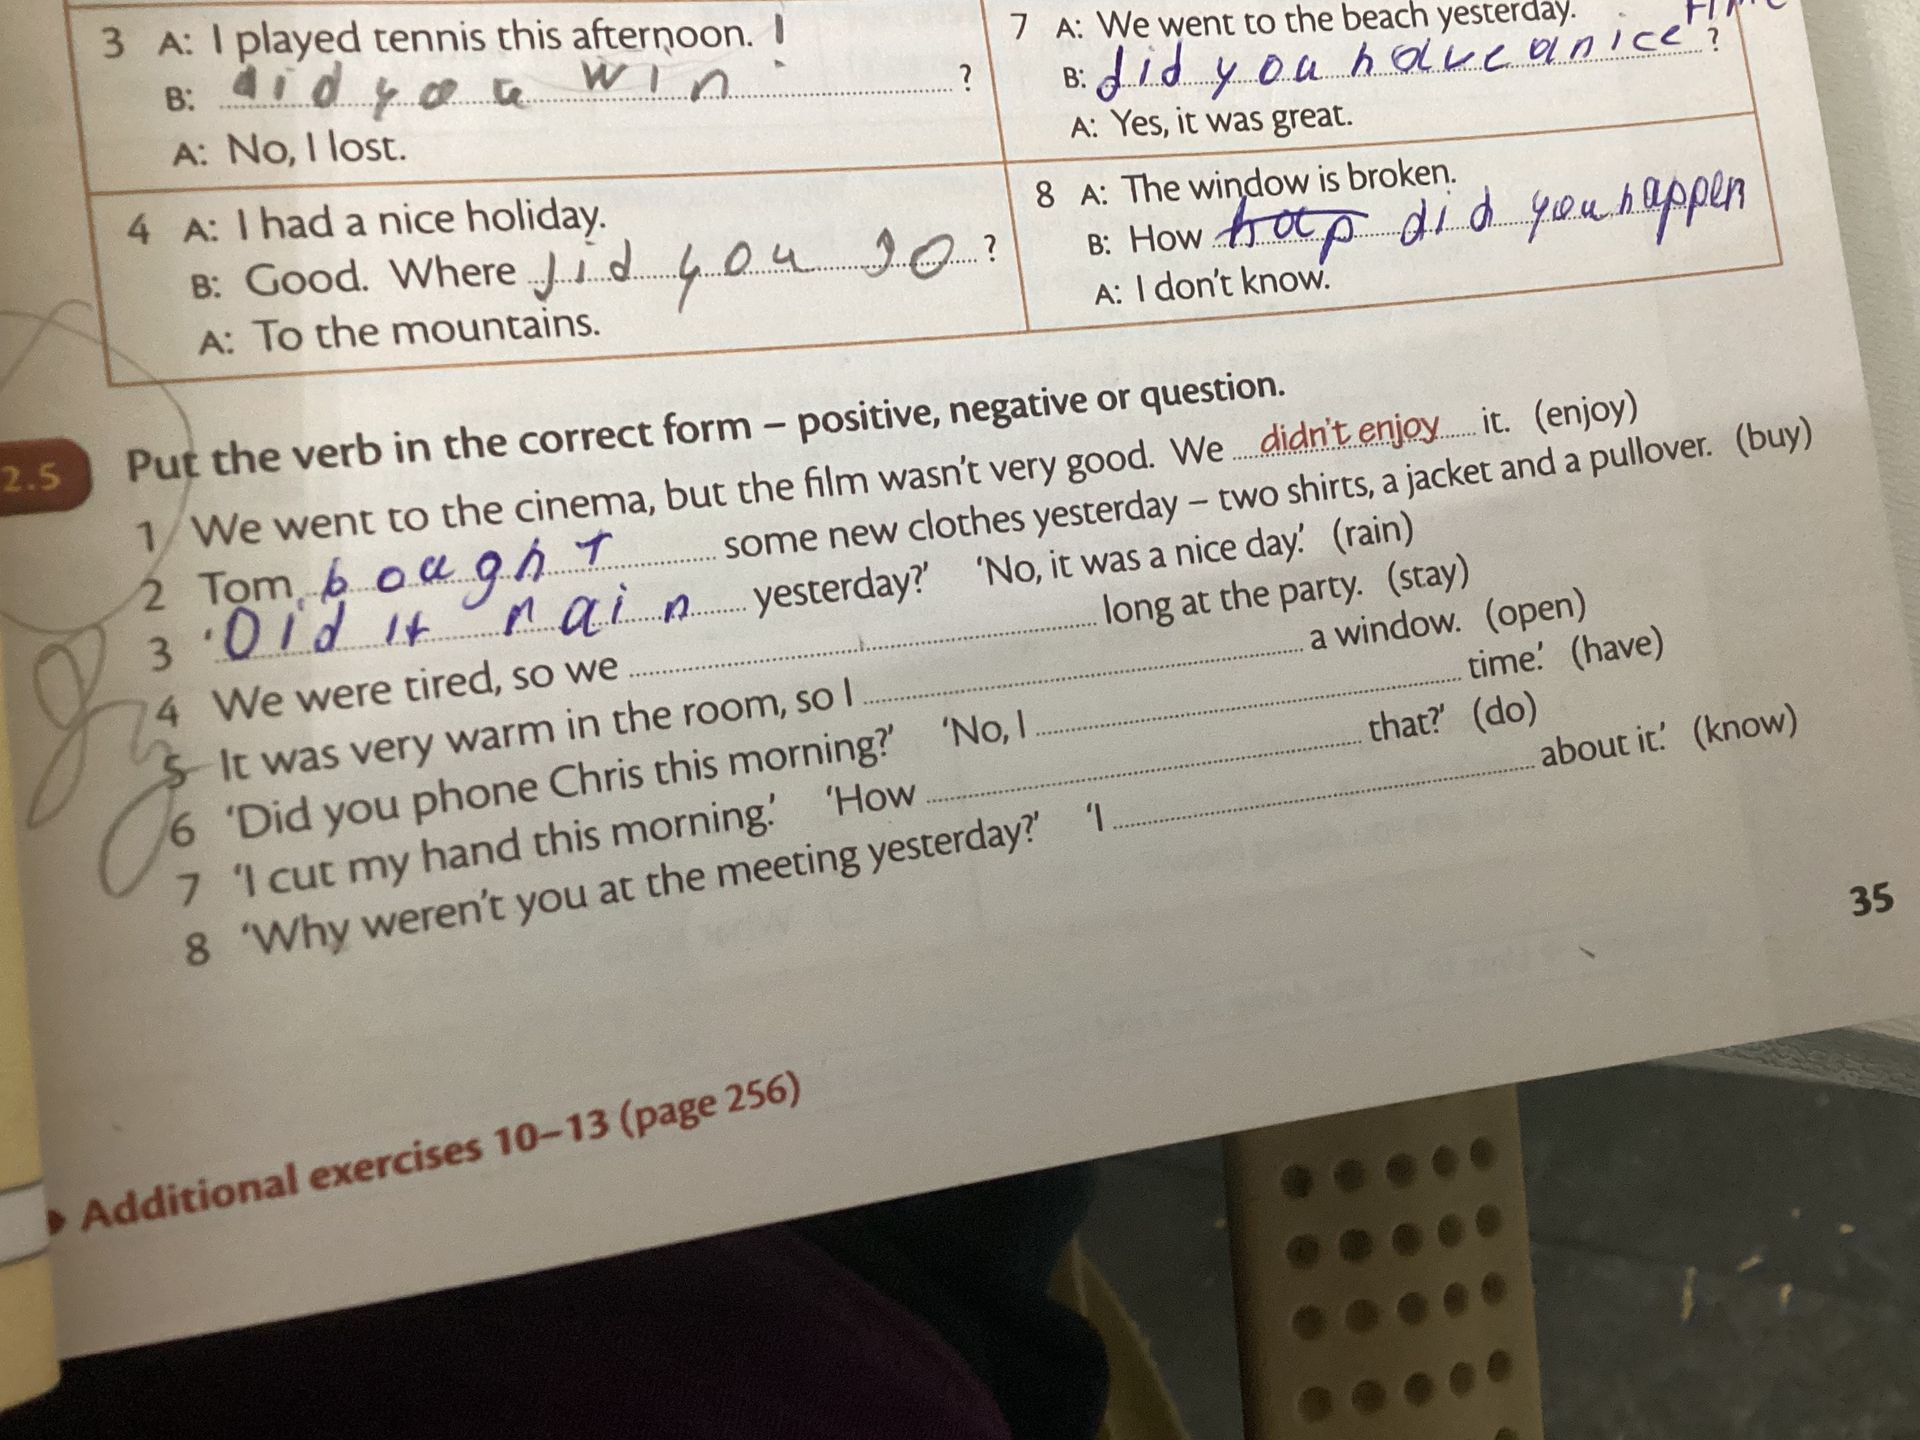 3 A: I played tennis this afternoon.
B: did you win ?
A: No, I lost.
4 A: I had a nice holiday.
B: Good. Where did you go ?
A: To the mountains.
7 A: We went to the beach yesterday.
B: did you have a nice time ?
A: Yes, it was great.
8 A: The window is broken.
B: How hap did you happen
A: I don't know.
2.5 Put the verb in the correct form – positive, negative or question.
1 We went to the cinema, but the film wasn't very good. We didn't enjoy it. (enjoy)
2 Tom bought some new clothes yesterday – two shirts, a jacket and a pullover. (buy)
3 'Did it rain yesterday?' 'No, it was a nice day.' (rain)
4 We were tired, so we long at the party. (stay)
5 It was very warm in the room, so I a window. (open)
6 'Did you phone Chris this morning?' 'No, I time.' (have)
7 'I cut my hand this morning.' 'How that?' (do)
8 'Why weren't you at the meeting yesterday?' 'I about it.' (know)
35
Additional exercises 10–13 (page 256)